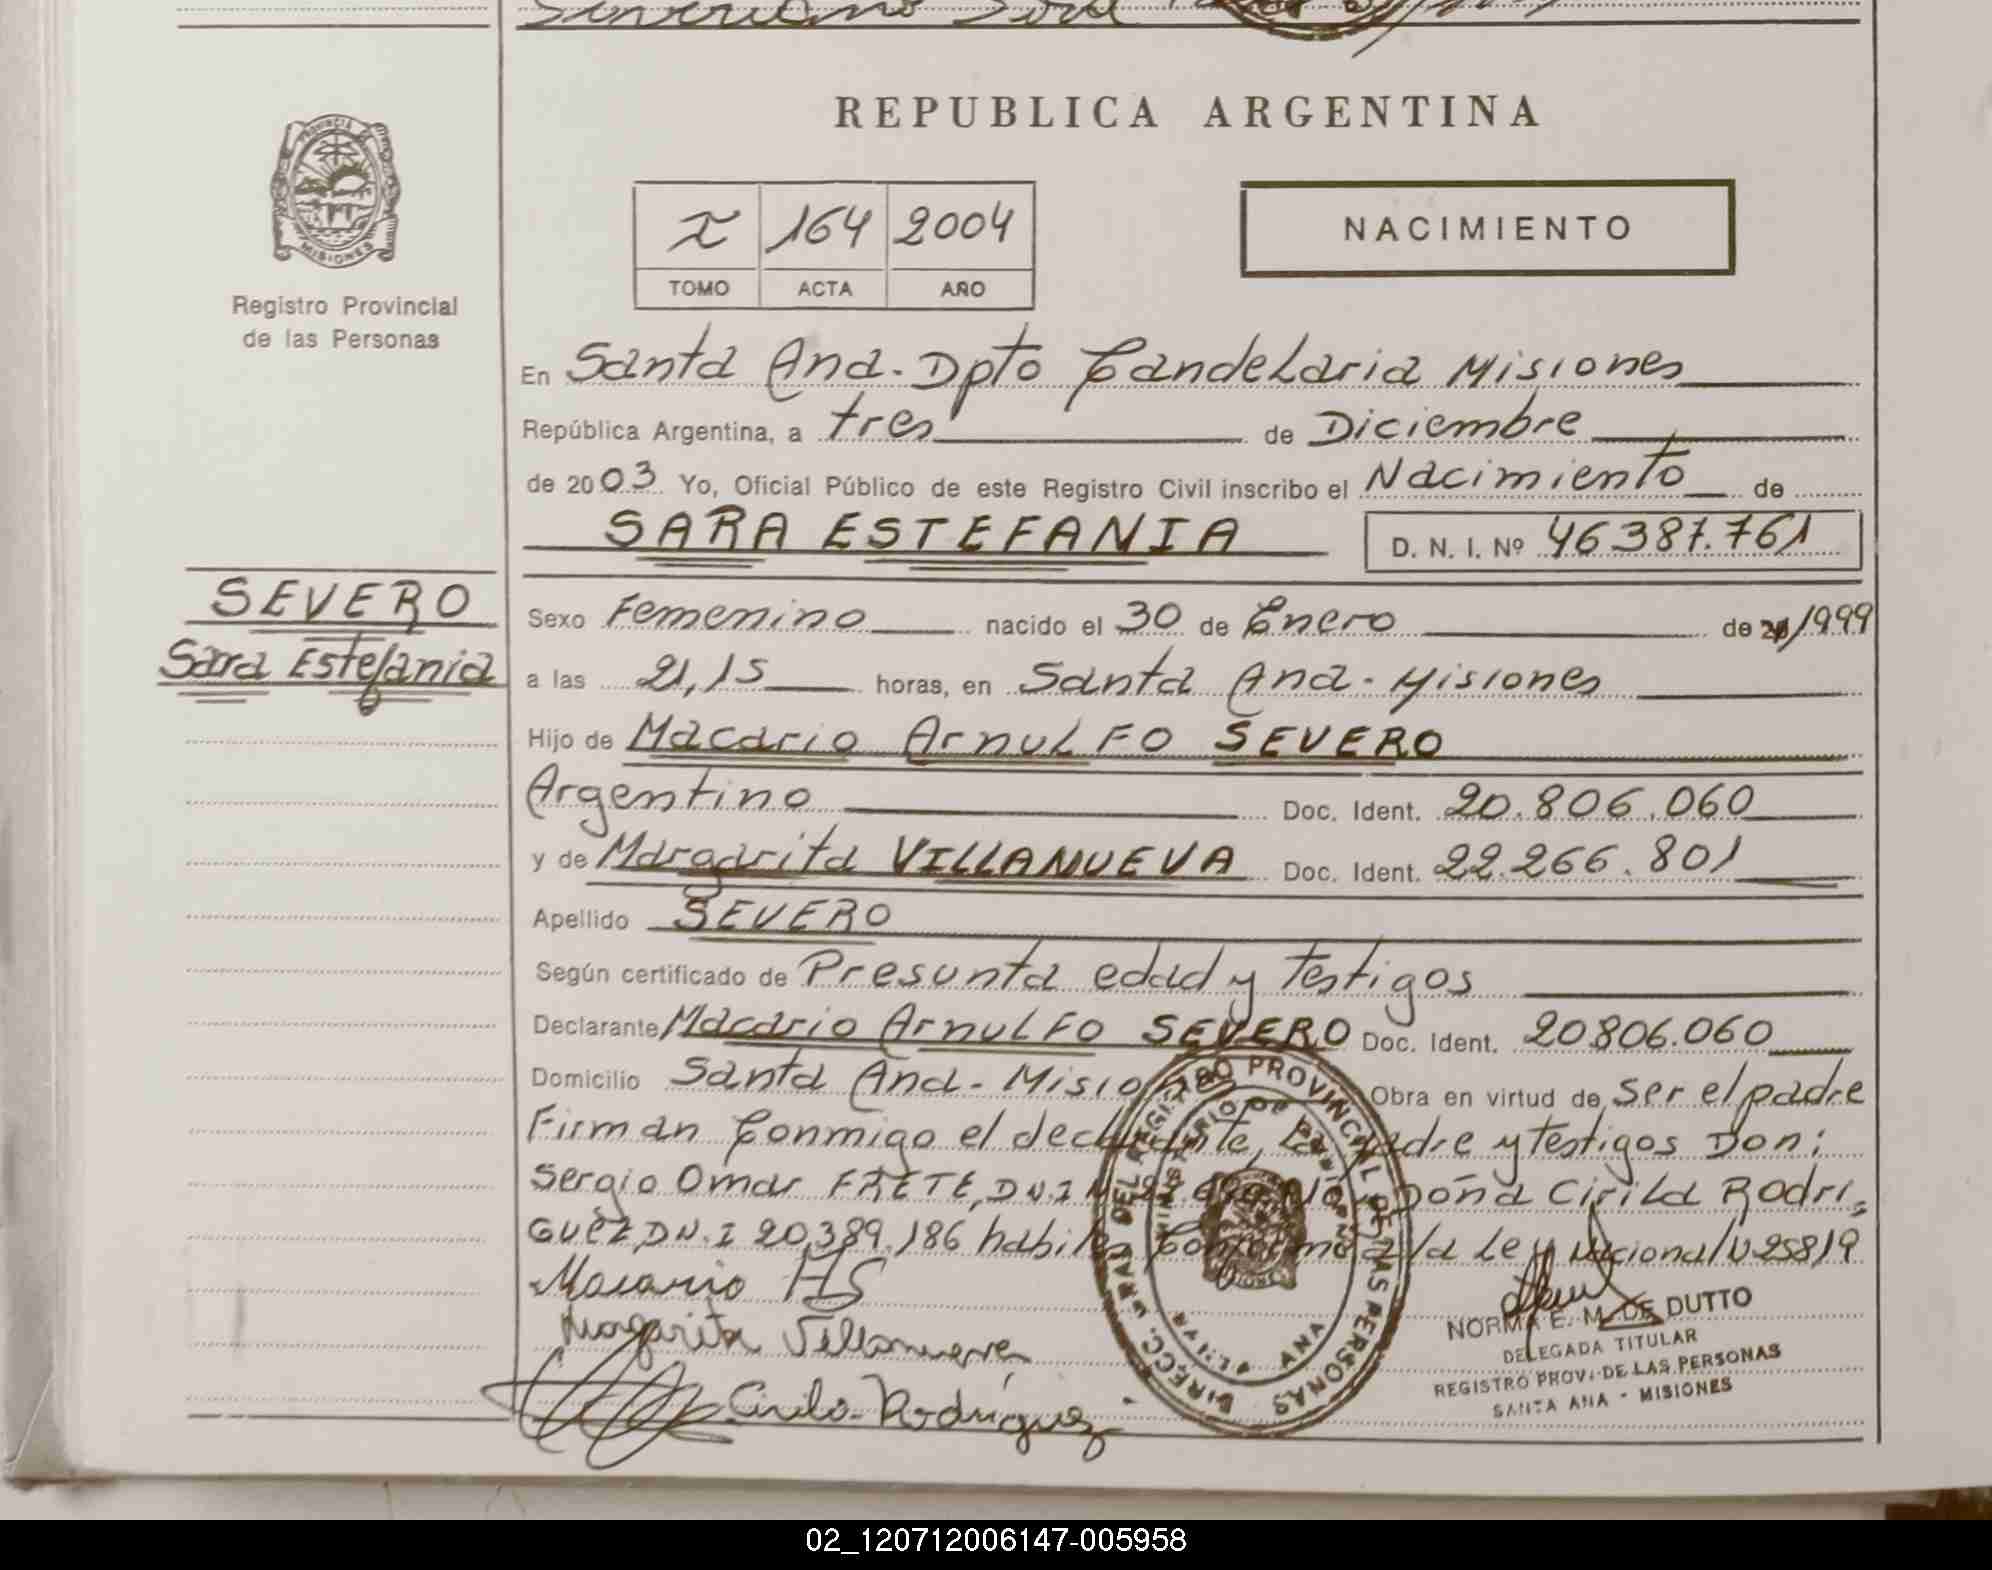 REPUBLICA ARGENTINA
PROVINCIA DE MISIONES
Registro Provincial
de las Personas
I 164 2004
TOMO ACTA AÑO
NACIMIENTO
En Santa Ana. Dpto Candelaria Misiones
República Argentina, a tres de Diciembre
de 2003. Yo, Oficial Público de este Registro Civil inscribo el Nacimiento de
SARA ESTEFANIA D. N. I. Nº 46387.761
SEVERO
Sara Estefania
Sexo Femenino nacido el 30 de Enero de 20/1999
a las 21,15 horas, en Santa Ana. Misiones
Hijo de Macario Arnulfo SEVERO
Argentino Doc. Ident. 20.806.060
y de Margarita VILLANUEVA Doc. Ident. 22.266.801
Apellido SEVERO
Según certificado de Presunta edad y Testigos
Declarante Macario Arnulfo SEVERO Doc. Ident. 20806.060
Domicilio Santa Ana - Misiones Obra en virtud de ser el padre
Firman Conmigo el declarante, La padre y testigos Don:
Sergio Omar D.N.I N Doña Cirila Rodri
guez D.N.I 20,389.186 habiles Conforme a la Ley Nacional N 25819
Macario AS
Margarita Villanueva
Cirila Rodriguez
DIRECC. GRAL DEL REGISTRO PROVINCIAL DE LAS PERSONAS
MINISTERIO DE
SANTA ANA
NORMA E. M. DE DUTTO
DELEGADA TITULAR
REGISTRO PROV. DE LAS PERSONAS
SANTA ANA - MISIONES
02_120712006147-005958